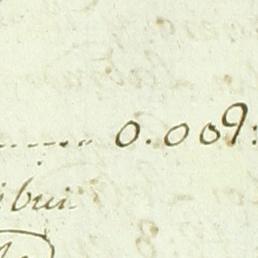 ...... 0.009:
ibui